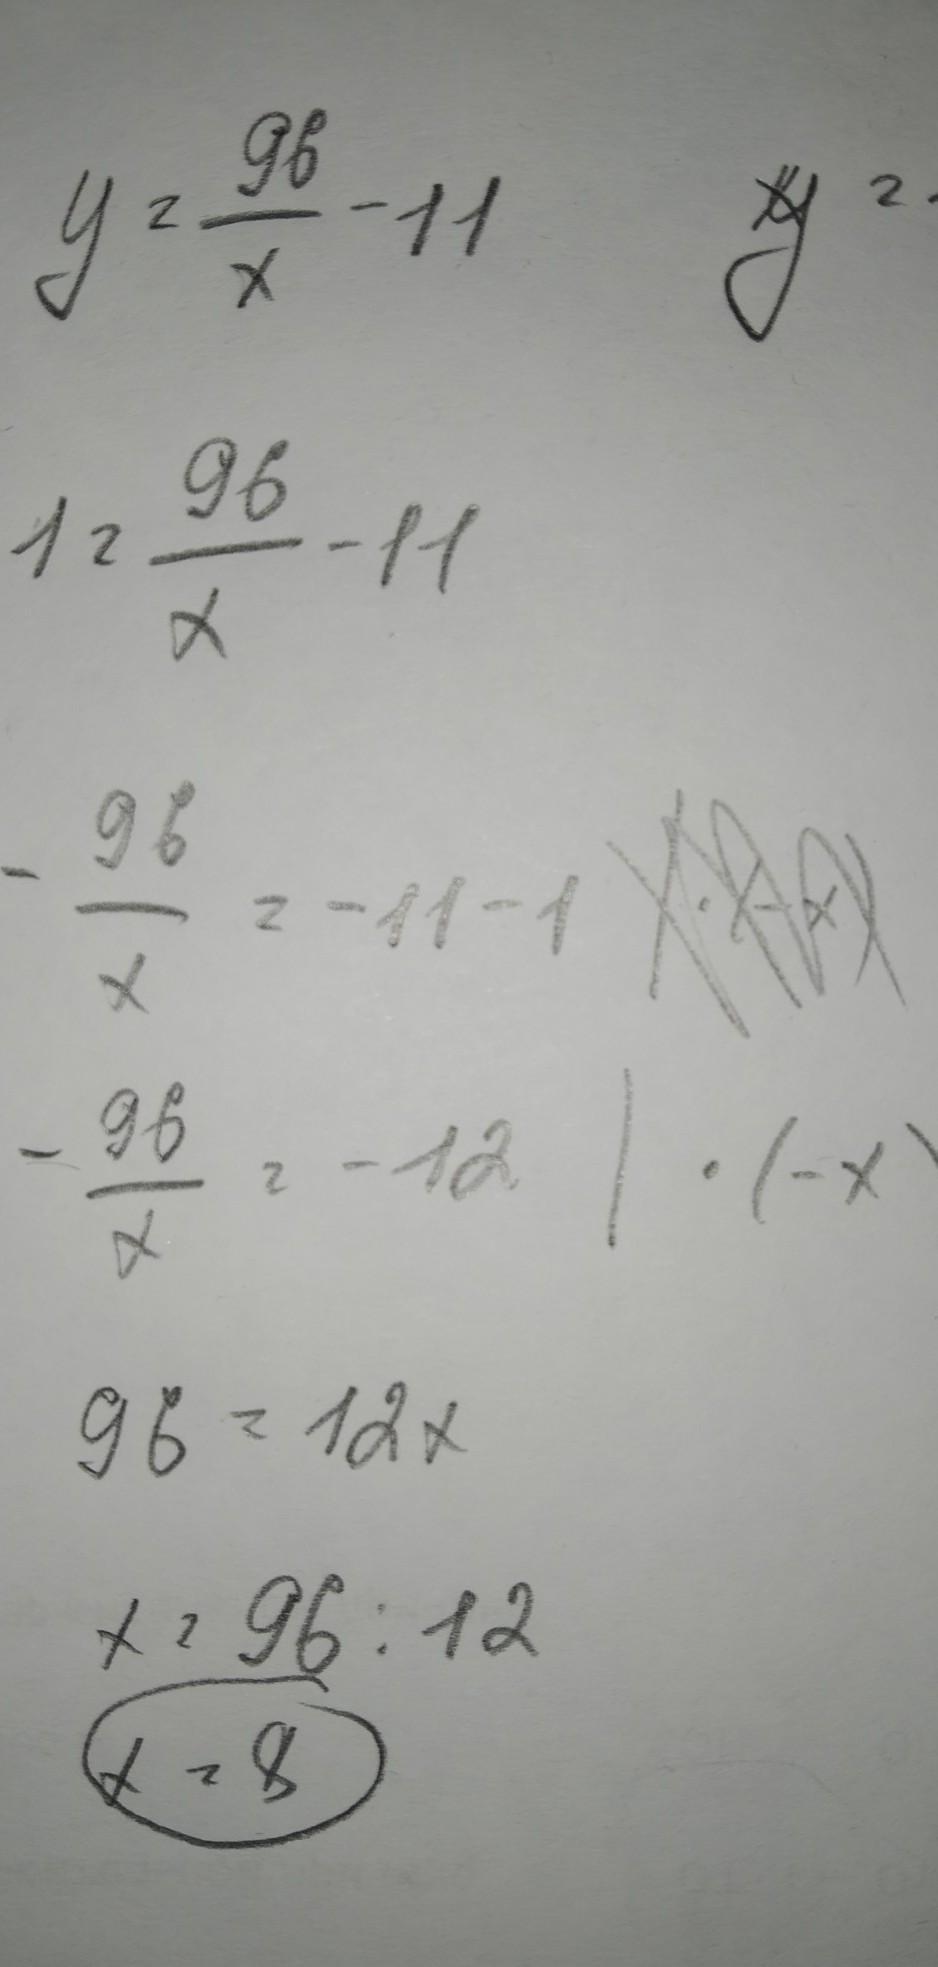 y = 96/x - 11   y =
1 = 96/x - 11
- 96/x = -11 - 1
- 96/x = -12 | · (-x)
96 = 12x
x = 96 : 12
x = 8